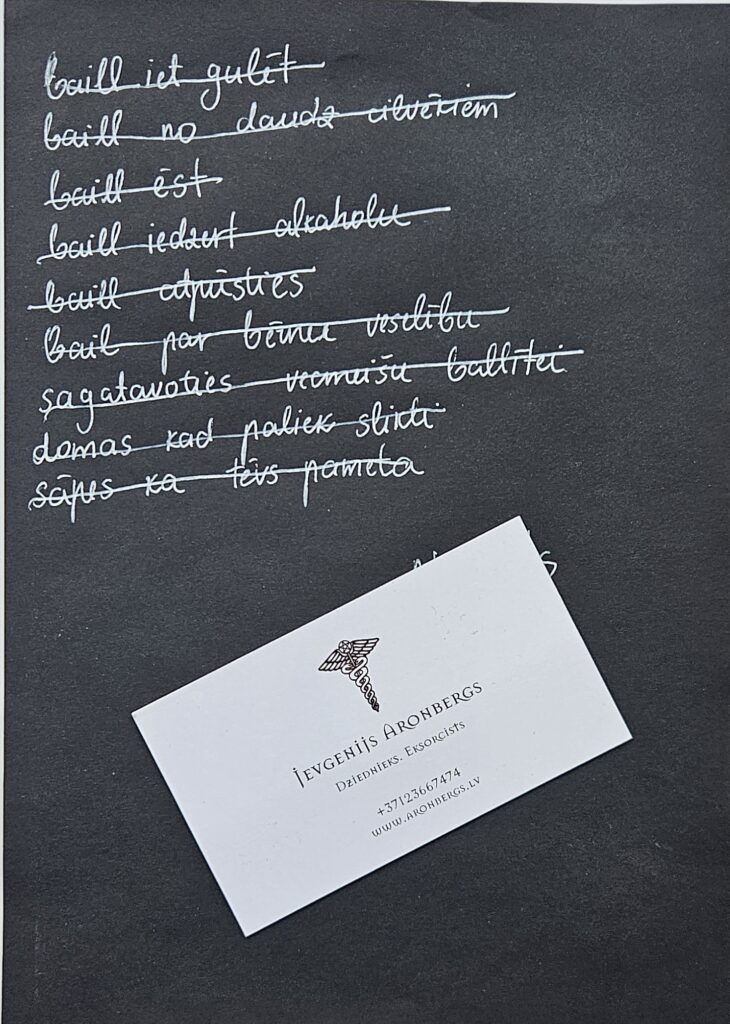 baill iet gulēt
baill no daudz cilvēkiem
baill ēst
baill iedzert alkaholu
baill atpūsties
Bail par bērnu veselību
sagatavoties vecmeišu ballītei
domas kad paliek slikti
sāpes ka tēvs pameta
Jevgenijs Aronbergs
Dziednieks. Eksorcists
+37123667474
www.aronbergs.lv